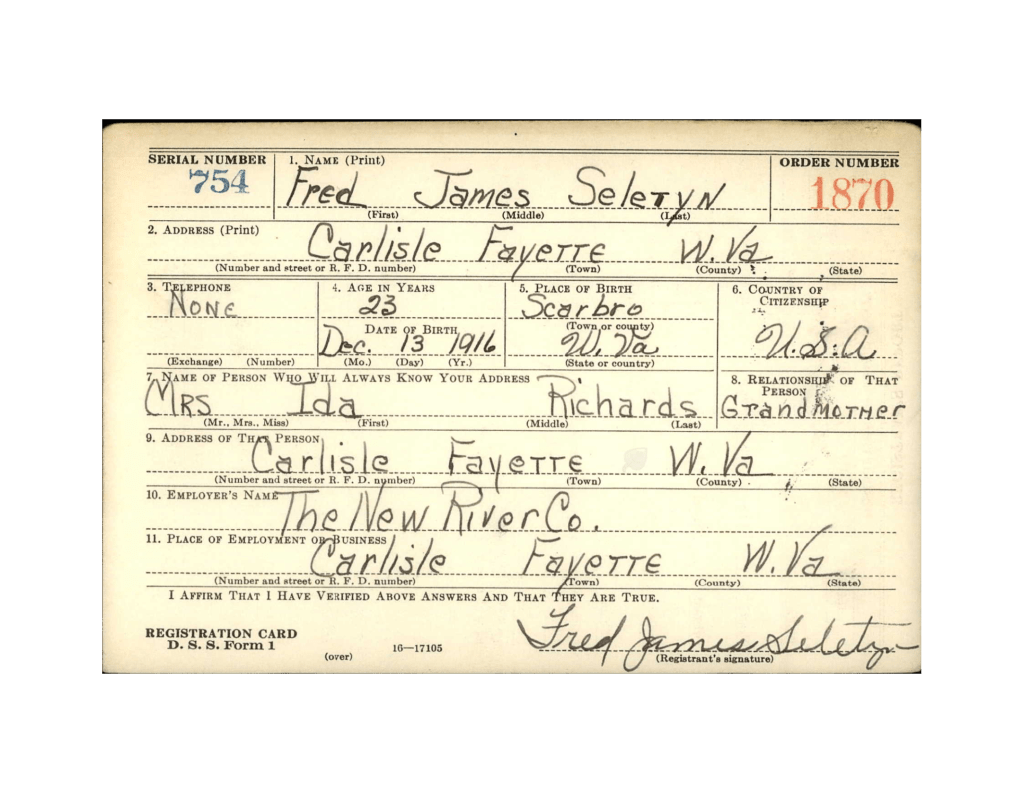 SERIAL NUMBER 1. NAME (Print) ORDER NUMBER
754 Fred James Seletyn 1870
(First) (Middle) (Last)
2. ADDRESS (Print)
Carlisle Fayette W. Va
(Number and street or R. F. D. number) (Town) (County) (State)
3. TELEPHONE 4. AGE IN YEARS 5. PLACE OF BIRTH 6. COUNTRY OF CITIZENSHIP
None 23 Scarbro
DATE OF BIRTH (Town or county)
Dec. 13 1916 W. Va U.S.A
(Exchange) (Number) (Mo.) (Day) (Yr.) (State or country)
7. NAME OF PERSON WHO WILL ALWAYS KNOW YOUR ADDRESS 8. RELATIONSHIP OF THAT PERSON
Mrs Ida Richards Grandmother
(Mr., Mrs., Miss) (First) (Middle) (Last)
9. ADDRESS OF THAT PERSON
Carlisle Fayette W. Va
(Number and street or R. F. D. number) (Town) (County) (State)
10. EMPLOYER'S NAME
The New River Co.
11. PLACE OF EMPLOYMENT OR BUSINESS
Carlisle Fayette W. Va
(Number and street or R. F. D. number) (Town) (County) (State)
I AFFIRM THAT I HAVE VERIFIED ABOVE ANSWERS AND THAT THEY ARE TRUE.
REGISTRATION CARD
D. S. S. Form 1
(over) 16—17105
Fred James Seletyn
(Registrant's signature)